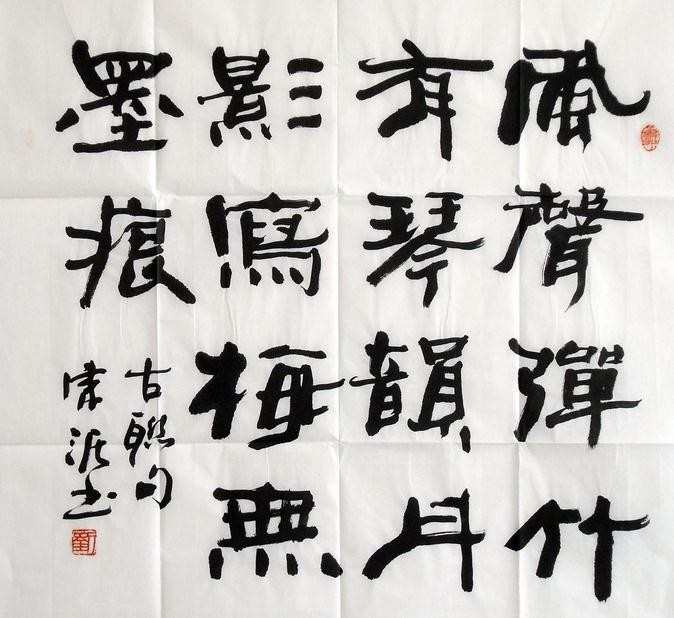 風聲彈竹
有琴韻月
影寫梅無
墨痕
古聯句
书